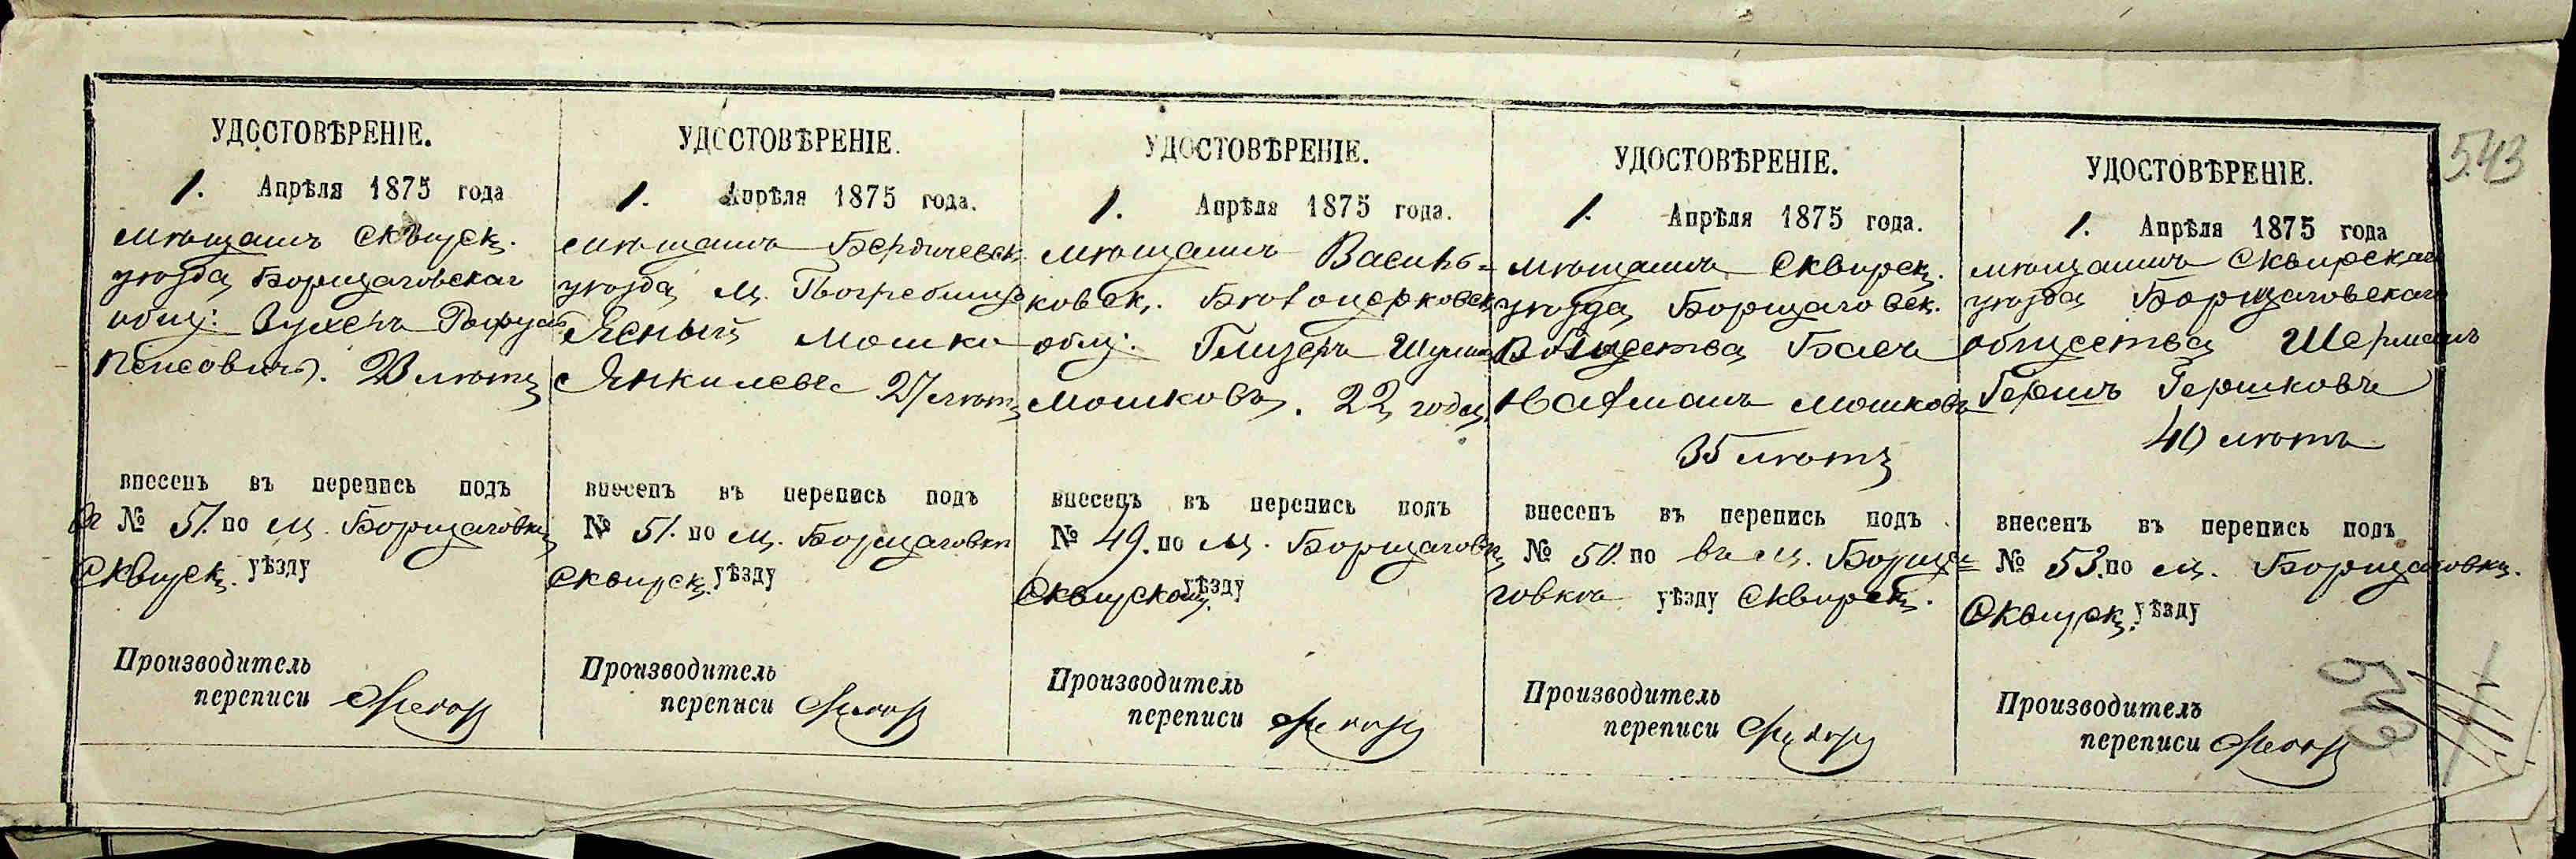 543
УДОСТОВѢРЕНІЕ.
1. Апрѣля 1875 года
мѣщанинъ Сквирск.
уѣзда Борщаговскаг
общ:
Пейсовичъ. 23 лѣтъ
внесенъ въ перепись подъ
№ 51. по м. Борщаговкѣ
Сквирск. уѣзду
Производитель
переписи
УДОСТОВѢРЕНІЕ.
1. Апрѣля 1875 года.
мѣщанинъ Бердичевск.
уѣзда м. Погребищъ
Ясный Мошко
Янкилевъ 27 лѣтъ
внесенъ въ перепись подъ
№ 51. по м. Борщаговкѣ
Сквирск. уѣзду
Производитель
переписи
УДОСТОВѢРЕНІЕ.
1. Апрѣля 1875 года.
мѣщанинъ Василь=
ковск. Бѣлоцерковск.
общ:
Мошковъ. 22 года
внесенъ въ перепись подъ
№ 49. по м. Борщаговкѣ
Сквирскому уѣзду
Производитель
переписи
УДОСТОВѢРЕНІЕ.
1. Апрѣля 1875 года.
мѣщанинъ Сквирск.
уѣзда Борщаговск.
Общества
Нафманъ Мошковъ
35 лѣтъ
внесенъ въ перепись подъ
№ 50. по въ м. Борща=
говкѣ уѣзду Сквирск.
Производитель
переписи
УДОСТОВѢРЕНІЕ.
1. Апрѣля 1875 года
мѣщанинъ Сквирскаго
уѣзда Борщаговскаго
общества Шерманъ
Гершъ Гершковъ
40 лѣтъ
внесенъ въ перепись подъ
№ 53. по м. Борщаговкѣ.
Сквирск. уѣзду
Производитель
переписи